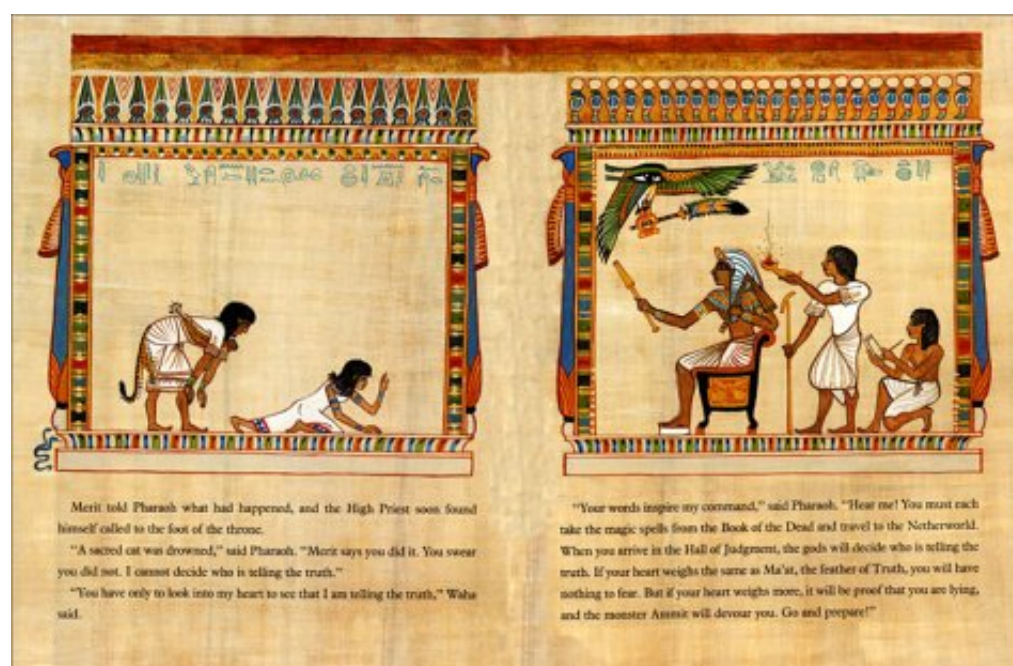 Merit told Pharaoh what had happened, and the High Priest soon found
himself called to the foot of the throne.
"A sacred cat was drowned," said Pharaoh. "Merit says you did it. You swear
you did not. I cannot decide who is telling the truth."
"You have only to look into my heart to see that I am telling the truth," Waha
said.
"Your words inspire my command," said Pharaoh. "Hear me! You must each
take the magic spells from the Book of the Dead and travel to the Netherworld.
When you arrive in the Hall of Judgment, the gods will decide who is telling the
truth. If your heart weighs the same as Ma'at, the feather of Truth, you will have
nothing to fear. But if your heart weighs more, it will be proof that you are lying,
and the monster Ammit will devour you. Go and prepare!"